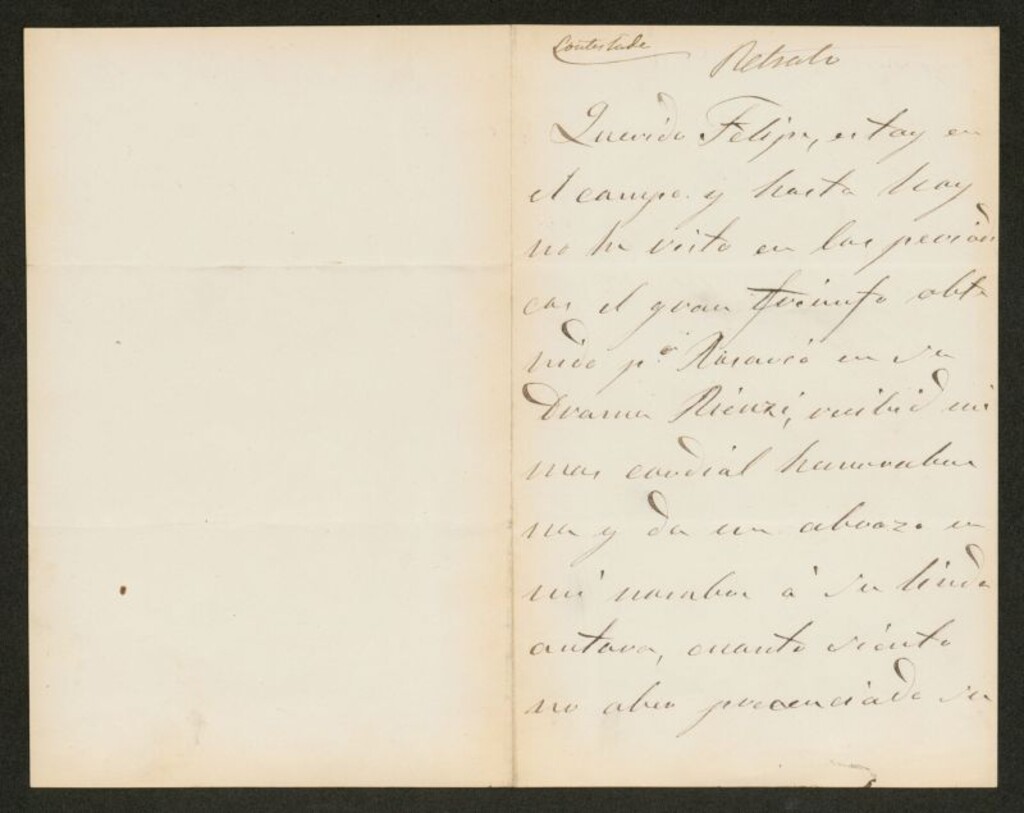 Contestada
Retrato
Querido Felipe, estoy en
el campo y hasta hoy
no he visto en los periodi
cos el gran triunfo obte
nido pr Rosario en su
Drama Rienzi, recibid mi
mas cordial henorabue
na y da un abrazo en
mi nombre á su linda
autora, cuanto siento
no aber precenciado su